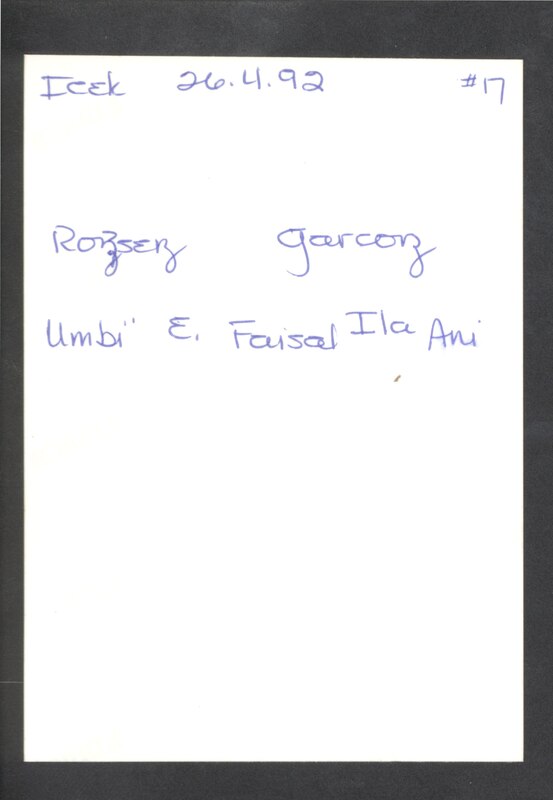 Icek 26.4.92 #17
Rozsez garcoz
Umbi" E. Faisal Ila Ani